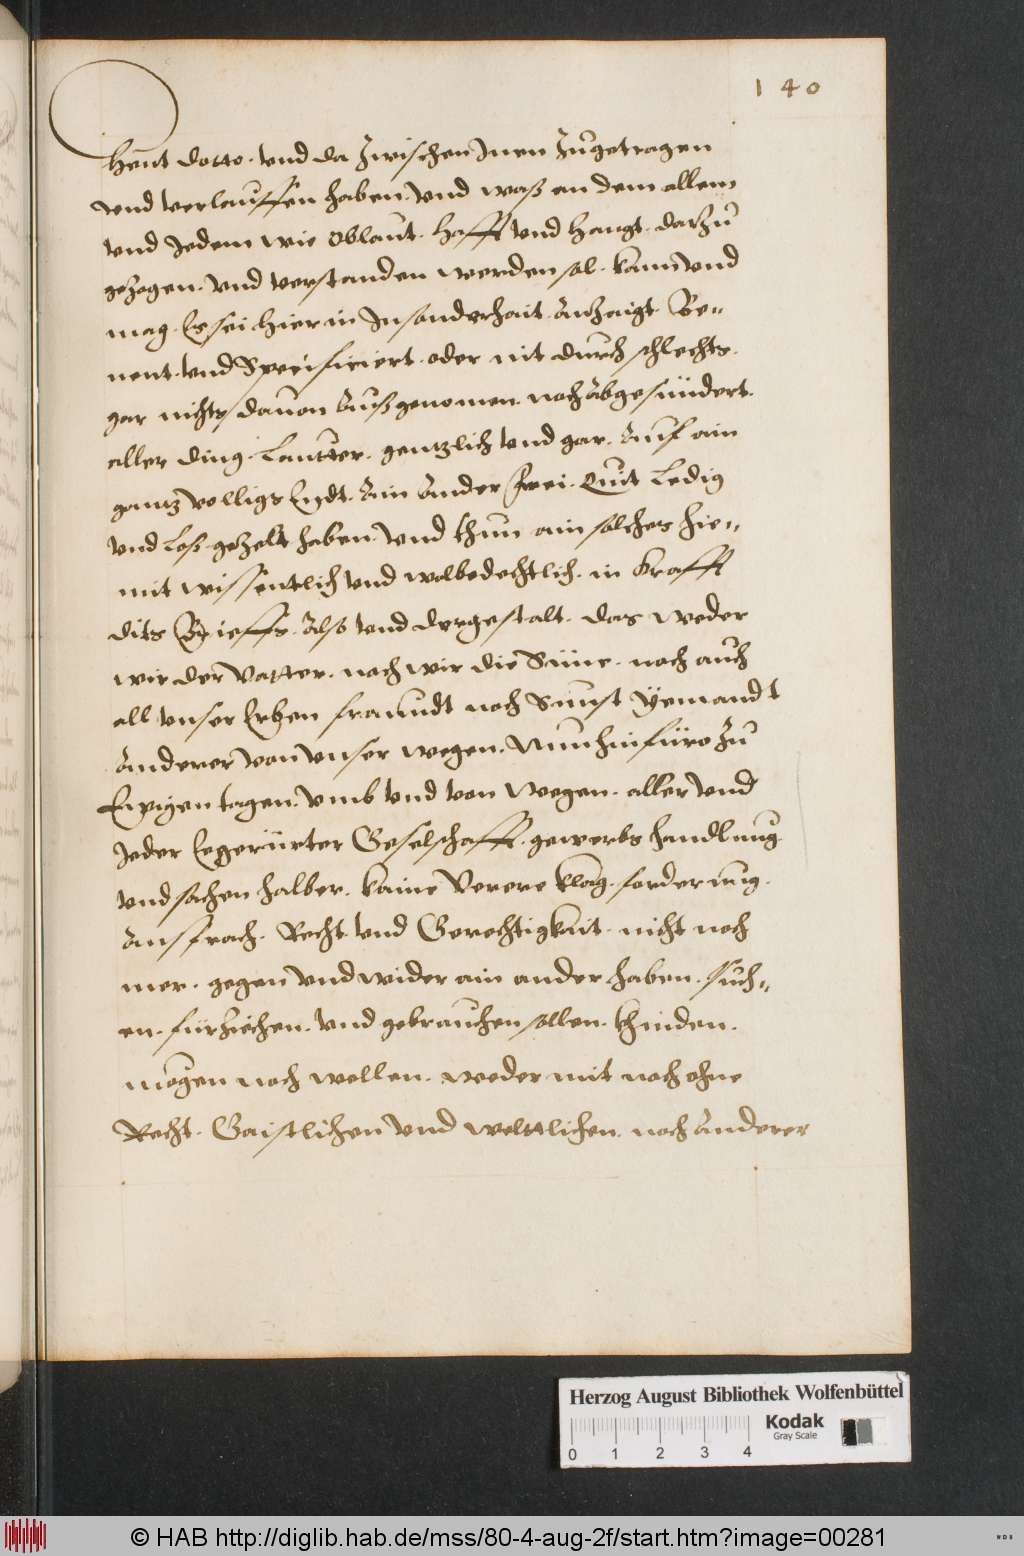 140
heut datto. vnd da zwischen Inen zugetragen
vnd verlauffen haben. vnd waß an dem allem
vnd Jedem wie oblaut. hafft vnd hangt. darzu
gezogen. vnd verstanden werden sol. kann vnd
mag. Es sei hier in In sonderhait. Anzaigt. Be=
nent. vnd Specificiert. oder nit durch schlechts.
gar nichts dauon Außgenomen. noch Abgesündert.
aller ding. Lautter. gentzlich vnd gar. Auf ain
gantz volligs Endt. Ain Ander Frei. Quit Ledig
vnd Loß gezelt haben. vnd thun ain solches hie=
mit wissentlich vnd wolbedechtlich. in krafft
dits Brieffs. Also vnd dergestalt. das weder
wir der Vatter. noch wir die Süne. noch auch
all vnser Erben fraundt noch Sunst Yemandt
Anderer von vnser wegen. Nun hinfüro zu
Ewigen tagen. vmb vnd von wegen. aller vnd
Jeder Eegerürter Geselschafft. gewerbs handlung
vnd sachen halber. kaine Verere klag. forderung.
Ansprach. Recht vnd Gerechtigkait. nicht noch
mer. gegen vnd wider ain ander haben. such=
en. fürziehen. vnd gebrauchen sollen. khinden.
mogen noch wollen. weder mit noch ohne
Recht. Gaistlichen vnd welttlichen. noch Anderer
Herzog August Bibliothek Wolfenbüttel
Kodak
Gray Scale
0 1 2 3 4
© HAB http://diglib.hab.de/mss/80-4-aug-2f/start.htm?image=00281